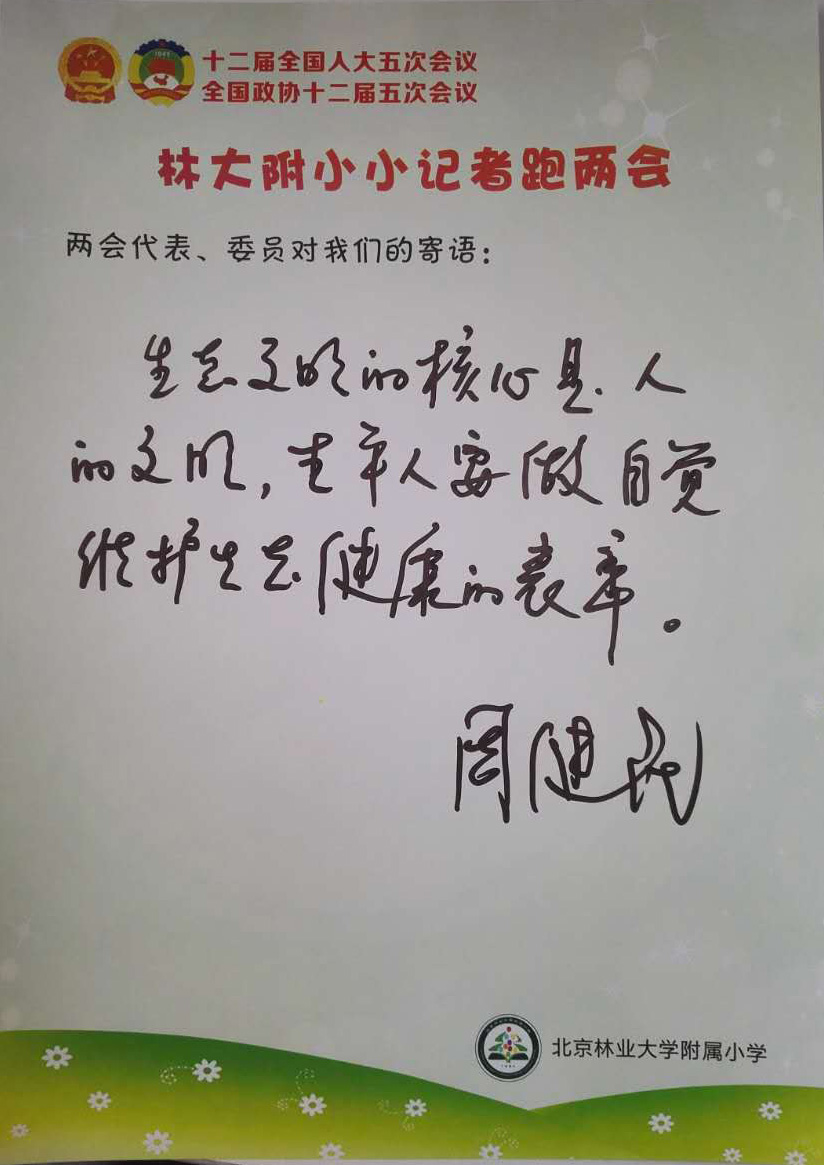 十二届全国人大五次会议
全国政协十二届五次会议
林大附小小记者跑两会
两会代表、委员对我们的寄语：
生态文明的核心是人
的文明，青年人要做自觉
维护生态健康的表率。
周健民
北京林业大学附属小学